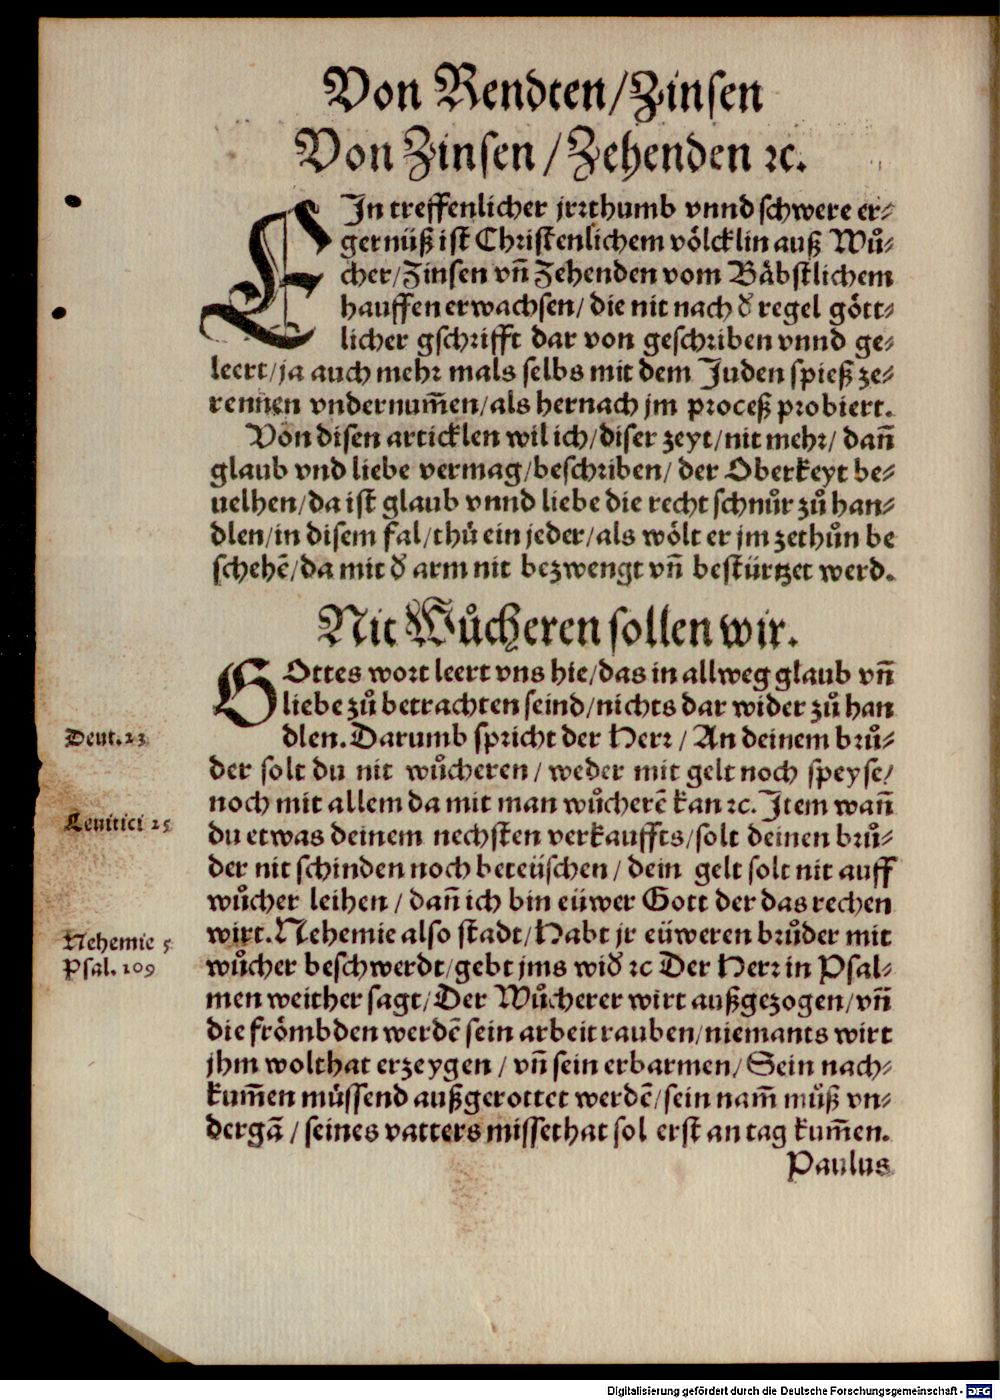 Von Rendten/Zinsen
Von Zinsen/Zehenden ꝛc.
EJn treffenlicher jrꝛthumb vnnd schwere er⸗
gernüß ist Christenlichem völcklin auß Wů⸗
cher/Zinsen vñ Zehenden vom Bäbstlichem
hauffen erwachsen/ die nit nach ď regel gött⸗
licher gschrifft dar von geschriben vnnd ge⸗
leert/ja auch mehr mals selbs mit dem Juden spieß ze⸗
rennen vndernum̃en/als hernach jm proceß probiert.
Von disen articklen wil ich/diser zeyt/nit mehr/ dañ
glaub vnd liebe vermag/beschriben/ der Oberkeyt be⸗
uelhen/da ist glaub vnnd liebe die recht schnůr zů han⸗
dlen/in disem fal/thů ein jeder/als wölt er jm zethůn be
schehẽ/da mit ď arm nit bezwengt vñ bestürtzet werd.
Nit Wůcheren sollen wir.
GOttes wort leert vns hie/das in allweg glaub vñ
liebe zů betrachten seind/nichts dar wider zů han
Deut. 23 dlen. Darumb spricht der Herr / An deinem brů⸗
der solt du nit wůcheren / weder mit gelt noch speyse/
noch mit allem da mit man wůcherẽ kan ꝛc. Jtem wañ
Leuitici 25 du etwas deinem nechsten verkauffts/solt deinen brů⸗
der nit schinden noch beteüschen / dein gelt solt nit auff
wůcher leihen / dañ ich bin eüwer Gott der das rechen
Nehemie 5 wirt. Nehemie also stadt/Habt jr eüweren brůder mit
Psal. 109 wůcher beschwerdt/gebt jms wiď ꝛc Der Herr in Psal⸗
men weither sagt/Der Wůcherer wirt außgezogen/vñ
die frömbden werdẽ sein arbeit rauben/niemants wirt
jhm wolthat erzeygen / vñ sein erbarmen/ Sein nach⸗
kum̃en müssend außgerottet werdẽ/sein nam̃ můß vn⸗
dergã / seines vatters missethat sol erst an tag kum̃en.
Paulus
Digitalisierung gefördert durch die Deutsche Forschungsgemeinschaft - DFG